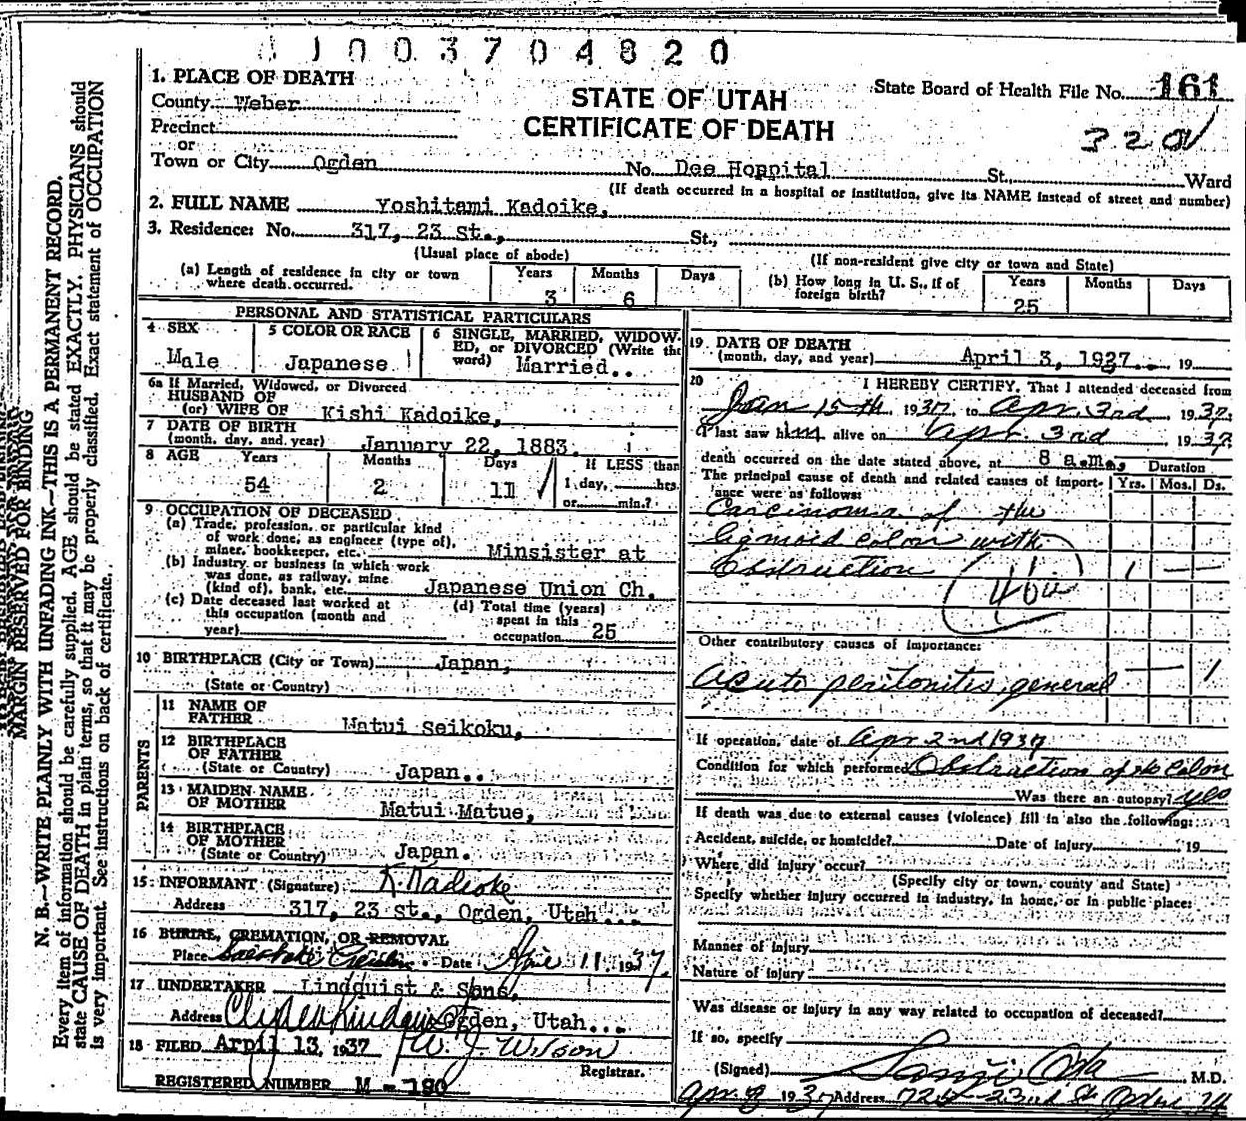 1003704820
1. PLACE OF DEATH
County Weber
Precinct
or
Town or City Ogden No. Dee Hospital St., Ward
STATE OF UTAH
CERTIFICATE OF DEATH
State Board of Health File No. 161
320
(If death occurred in a hospital or institution, give its NAME instead of street and number)
2. FULL NAME Yoshitami Kadoike,
3. Residence: No. 317, 23 st., St.,
(Usual place of abode) (If non-resident give city or town and State)
(a) Length of residence in city or town where death occurred. Years 3 Months 6 Days
(b) How long in U. S., if of foreign birth? Years 25 Months Days
PERSONAL AND STATISTICAL PARTICULARS
4 SEX Male
5 COLOR OR RACE Japanese
6 SINGLE, MARRIED, WIDOWED, or DIVORCED (Write the word) Married..
6a If Married, Widowed, or Divorced
HUSBAND OF
(or) WIFE OF Kishi Kadoike,
7 DATE OF BIRTH
(month, day, and year) January 22, 1883.
8 AGE Years 54 Months 2 Days 11 If LESS than 1 day, hrs. or min.?
9 OCCUPATION OF DECEASED
(a) Trade, profession, or particular kind
of work done, as engineer (type of),
miner, bookkeeper, etc. Minsister at
(b) Industry or business in which work
was done, as railway, mine
(kind of), bank, etc. Japanese Union Ch.
(c) Date deceased last worked at
this occupation (month and
year)
(d) Total time (years)
spent in this
occupation 25
10 BIRTHPLACE (City or Town) Japan,
(State or Country)
PARENTS
11 NAME OF
FATHER Matui Seikoku,
12 BIRTHPLACE
OF FATHER
(State or Country) Japan..
13 MAIDEN NAME
OF MOTHER Matui Matue,
14 BIRTHPLACE
OF MOTHER
(State or Country) Japan.
15 INFORMANT (Signature) K. Kadioke
Address 317, 23 st., Ogden, Utah...
16 BURIAL, CREMATION, OR REMOVAL
Place Date April 11 1937.
17 UNDERTAKER Lindquist & Sons,
Address Ogden, Utah...
18 FILED April 13, 1937 W. J. Wilson
Registrar.
REGISTERED NUMBER M - 180
19 DATE OF DEATH
(month, day, and year) April 3, 1937. 19
20 I HEREBY CERTIFY, That I attended deceased from
Jan 15th 1937, to Apr. 3rd, 1937.
I last saw him alive on Apr. 3rd, 1937.
death occurred on the date stated above, at 8 a.m., Duration
The principal cause of death and related causes of importance were as follows: Yrs. Mos. Ds.
Carcinoma of the
Sigmoid Colon with
Obstruction 1 —
46
Other contributory causes of importance:
Acute peritonites, general — 1
If operation, date of Apr 2nd 1937
Condition for which performed Obstruction of the Colon
Was there an autopsy? yes
If death was due to external causes (violence) fill in also the following:
Accident, suicide, or homicide? Date of injury 19
Where did injury occur?
(Specify city or town, county and State)
Specify whether injury occurred in industry, in home, or in public place:
Manner of injury
Nature of injury
Was disease or injury in any way related to occupation of deceased?
If so, specify
(Signed) M.D.
Apr. 8 1937 Address 725-23rd St Ogden
N. B.—WRITE PLAINLY WITH UNFADING INK—THIS IS A PERMANENT RECORD.
MARGIN RESERVED FOR BINDING
Every item of information should be carefully supplied. AGE should be stated EXACTLY. PHYSICIANS should
state CAUSE OF DEATH in plain terms, so that it may be properly classified. Exact statement of OCCUPATION
is very important. See instructions on back of certificate.